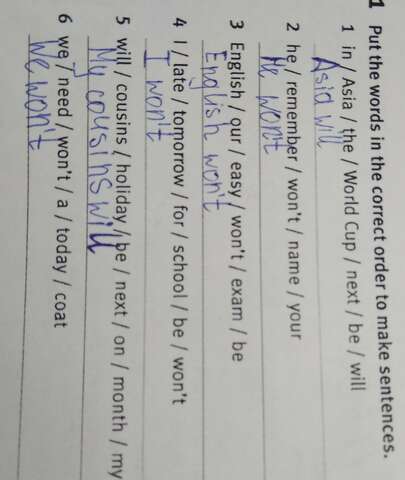 1 Put the words in the correct order to make sentences.
1 in / Asia / the / World Cup / next / be / will
Asia will
2 he / remember / won't / name / your
He won't
3 English / our / easy / won't / exam / be
English won't
4 I / late / tomorrow / for / school / be / won't
I won't
5 will / cousins / holiday / be / next / on / month / my
My cousins will
6 we / need / won't / a / today / coat
We won't